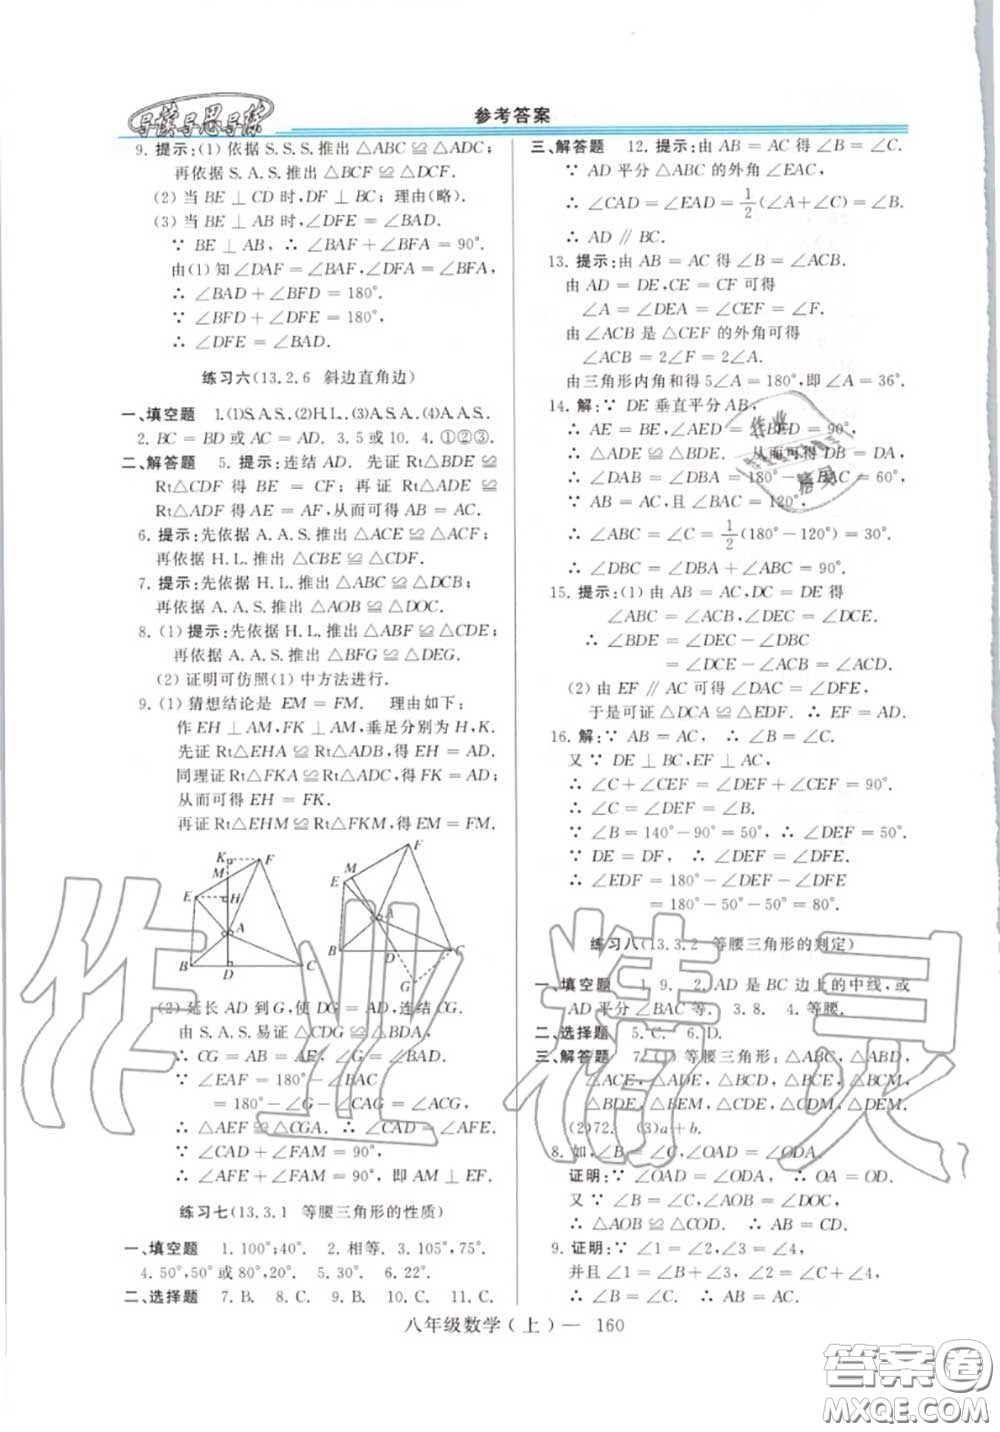 导读导思导练
参考答案
9. 提示:(1) 依据 S.S.S. 推出 △ABC ≌ △ADC;
再依据 S.A.S. 推出 △BCF ≌ △DCF.
(2) 当 BE ⊥ CD 时,DF ⊥ BC; 理由(略).
(3) 当 BE ⊥ AB 时,∠DFE = ∠BAD.
∵ BE ⊥ AB, ∴ ∠BAF + ∠BFA = 90°.
由(1) 知 ∠DAF = ∠BAF, ∠DFA = ∠BFA,
∴ ∠BAD + ∠BFD = 180°.
∵ ∠BFD + ∠DFE = 180°,
∴ ∠DFE = ∠BAD.
练习六(13.2.6 斜边直角边)
一、填空题 1.(1)S.A.S.(2)H.L.(3)A.S.A.(4)A.A.S.
2. BC = BD 或 AC = AD. 3. 5 或 10. 4. ①②③.
二、解答题 5. 提示:连结 AD. 先证 Rt△BDE ≌
Rt△CDF 得 BE = CF; 再证 Rt△ADE ≌
Rt△ADF 得 AE = AF,从而可得 AB = AC.
6. 提示:先依据 A.A.S. 推出 △ACE ≌ △ACF;
再依据 H.L. 推出 △CBE ≌ △CDF.
7. 提示:先依据 H.L. 推出 △ABC ≌ △DCB;
再依据 A.A.S. 推出 △AOB ≌ △DOC.
8. (1) 提示:先依据 H.L. 推出 △ABF ≌ △CDE;
再依据 A.A.S. 推出 △BFG ≌ △DEG.
(2) 证明可仿照(1) 中方法进行.
9. (1) 猜想结论是 EM = FM. 理由如下:
作 EH ⊥ AM,FK ⊥ AM,垂足分别为 H,K.
先证 Rt△EHA ≌ Rt△ADB,得 EH = AD.
同理证 Rt△FKA ≌ Rt△ADC,得 FK = AD.
从而可得 EH = FK.
再证 Rt△EHM ≌ Rt△FKM,得 EM = FM.
K F M E H A B D C
F M E A B D C G
(2) 延长 AD 到 G,使 DG = AD,连结 CG.
由 S.A.S. 易证 △CDG ≌ △BDA,
∴ CG = AB = AE, ∠G = ∠BAD.
∵ ∠EAF = 180° − ∠BAC
= 180° − ∠G − ∠CAG = ∠ACG,
∴ △AEF ≌ △CGA. ∴ ∠AFE = ∠CAG.
∵ ∠CAD + ∠FAM = 90°,
∴ ∠AFE + ∠FAM = 90°, 即 AM ⊥ EF.
练习七(13.3.1 等腰三角形的性质)
一、填空题 1. 100°;40°. 2. 相等. 3. 105°,75°.
4. 50°,50° 或 80°,20°. 5. 30°. 6. 22°.
二、选择题 7. B. 8. C. 9. B. 10. C. 11. C.
三、解答题 12. 提示:由 AB = AC 得 ∠B = ∠C.
∵ AD 平分 △ABC 的外角 ∠EAC,
∴ ∠CAD = ∠EAD = 1/2(∠A + ∠C) = ∠C.
∴ AD ∥ BC.
13. 提示:由 AB = AC 得 ∠B = ∠ACB.
由 AD = DE,CE = CF 可得
∠A = ∠DEA = ∠CEF = ∠F.
由 ∠ACB 是 △CEF 的外角可得
∠ACB = 2∠F = 2∠A.
由三角形内角和得 5∠A = 180°,即 ∠A = 36°.
14. 解:∵ DE 垂直平分 AB,
∴ AE = BE, ∠AED = ∠BED = 90°.
∴ △ADE ≌ △BDE. 从而可得 DB = DA,
∴ ∠DAB = ∠DBA = 180° − 90° − 60° = 30°.
∵ AB = AC,且 ∠BAC = 120°,
∴ ∠ABC = ∠C = 1/2(180° − 120°) = 30°.
∴ ∠DBC = ∠DBA + ∠ABC = 90°.
15. 提示:(1) 由 AB = AC,DC = DE 得
∠ABC = ∠ACB, ∠DEC = ∠DCE.
∴ ∠BDE = ∠DEC − ∠DBC
= ∠DCE − ∠ACB = ∠ACD.
(2) 由 EF ∥ AC 可得 ∠DAC = ∠DFE,
于是可证 △DCA ≌ △EDF. ∴ EF = AD.
16. 解:∵ AB = AC, ∴ ∠B = ∠C.
又 ∵ DE ⊥ BC,EF ⊥ AC,
∴ ∠C + ∠CEF = ∠DEF + ∠CEF = 90°.
∴ ∠C = ∠DEF = ∠B.
∵ ∠B = 140° − 90° = 50°, ∴ ∠DEF = 50°.
∵ DE = DF, ∴ ∠DEF = ∠DFE.
∴ ∠EDF = 180° − ∠DEF − ∠DFE
= 180° − 50° − 50° = 80°.
练习八(13.3.2 等腰三角形的判定)
一、填空题 1. 9. 2. AD 是 BC 边上的中线,或
AD 平分 ∠BAC 等. 3. 8. 4. 等腰.
二、选择题 5. C. 6. D.
三、解答题 7. (1) 等腰三角形:△ABC,△ABD,
△ACE,△ADE,△BCD,△BCE,△BCM,
△BDE,△BEM,△CDE,△CDM,△DEM.
(2)72. (3)a + b.
8. 如,∠B = ∠C,∠OAD = ∠ODA.
证明:∵ ∠OAD = ∠ODA, ∴ OA = OD.
又 ∵ ∠B = ∠C, ∠AOB = ∠DOC,
∴ △AOB ≌ △COD. ∴ AB = CD.
9. 证明:∵ ∠1 = ∠2, ∠3 = ∠4,
并且 ∠1 + ∠2 = ∠3 + ∠4,
八年级数学(上)— 160
作业精灵
答案圈
MXQE.COM